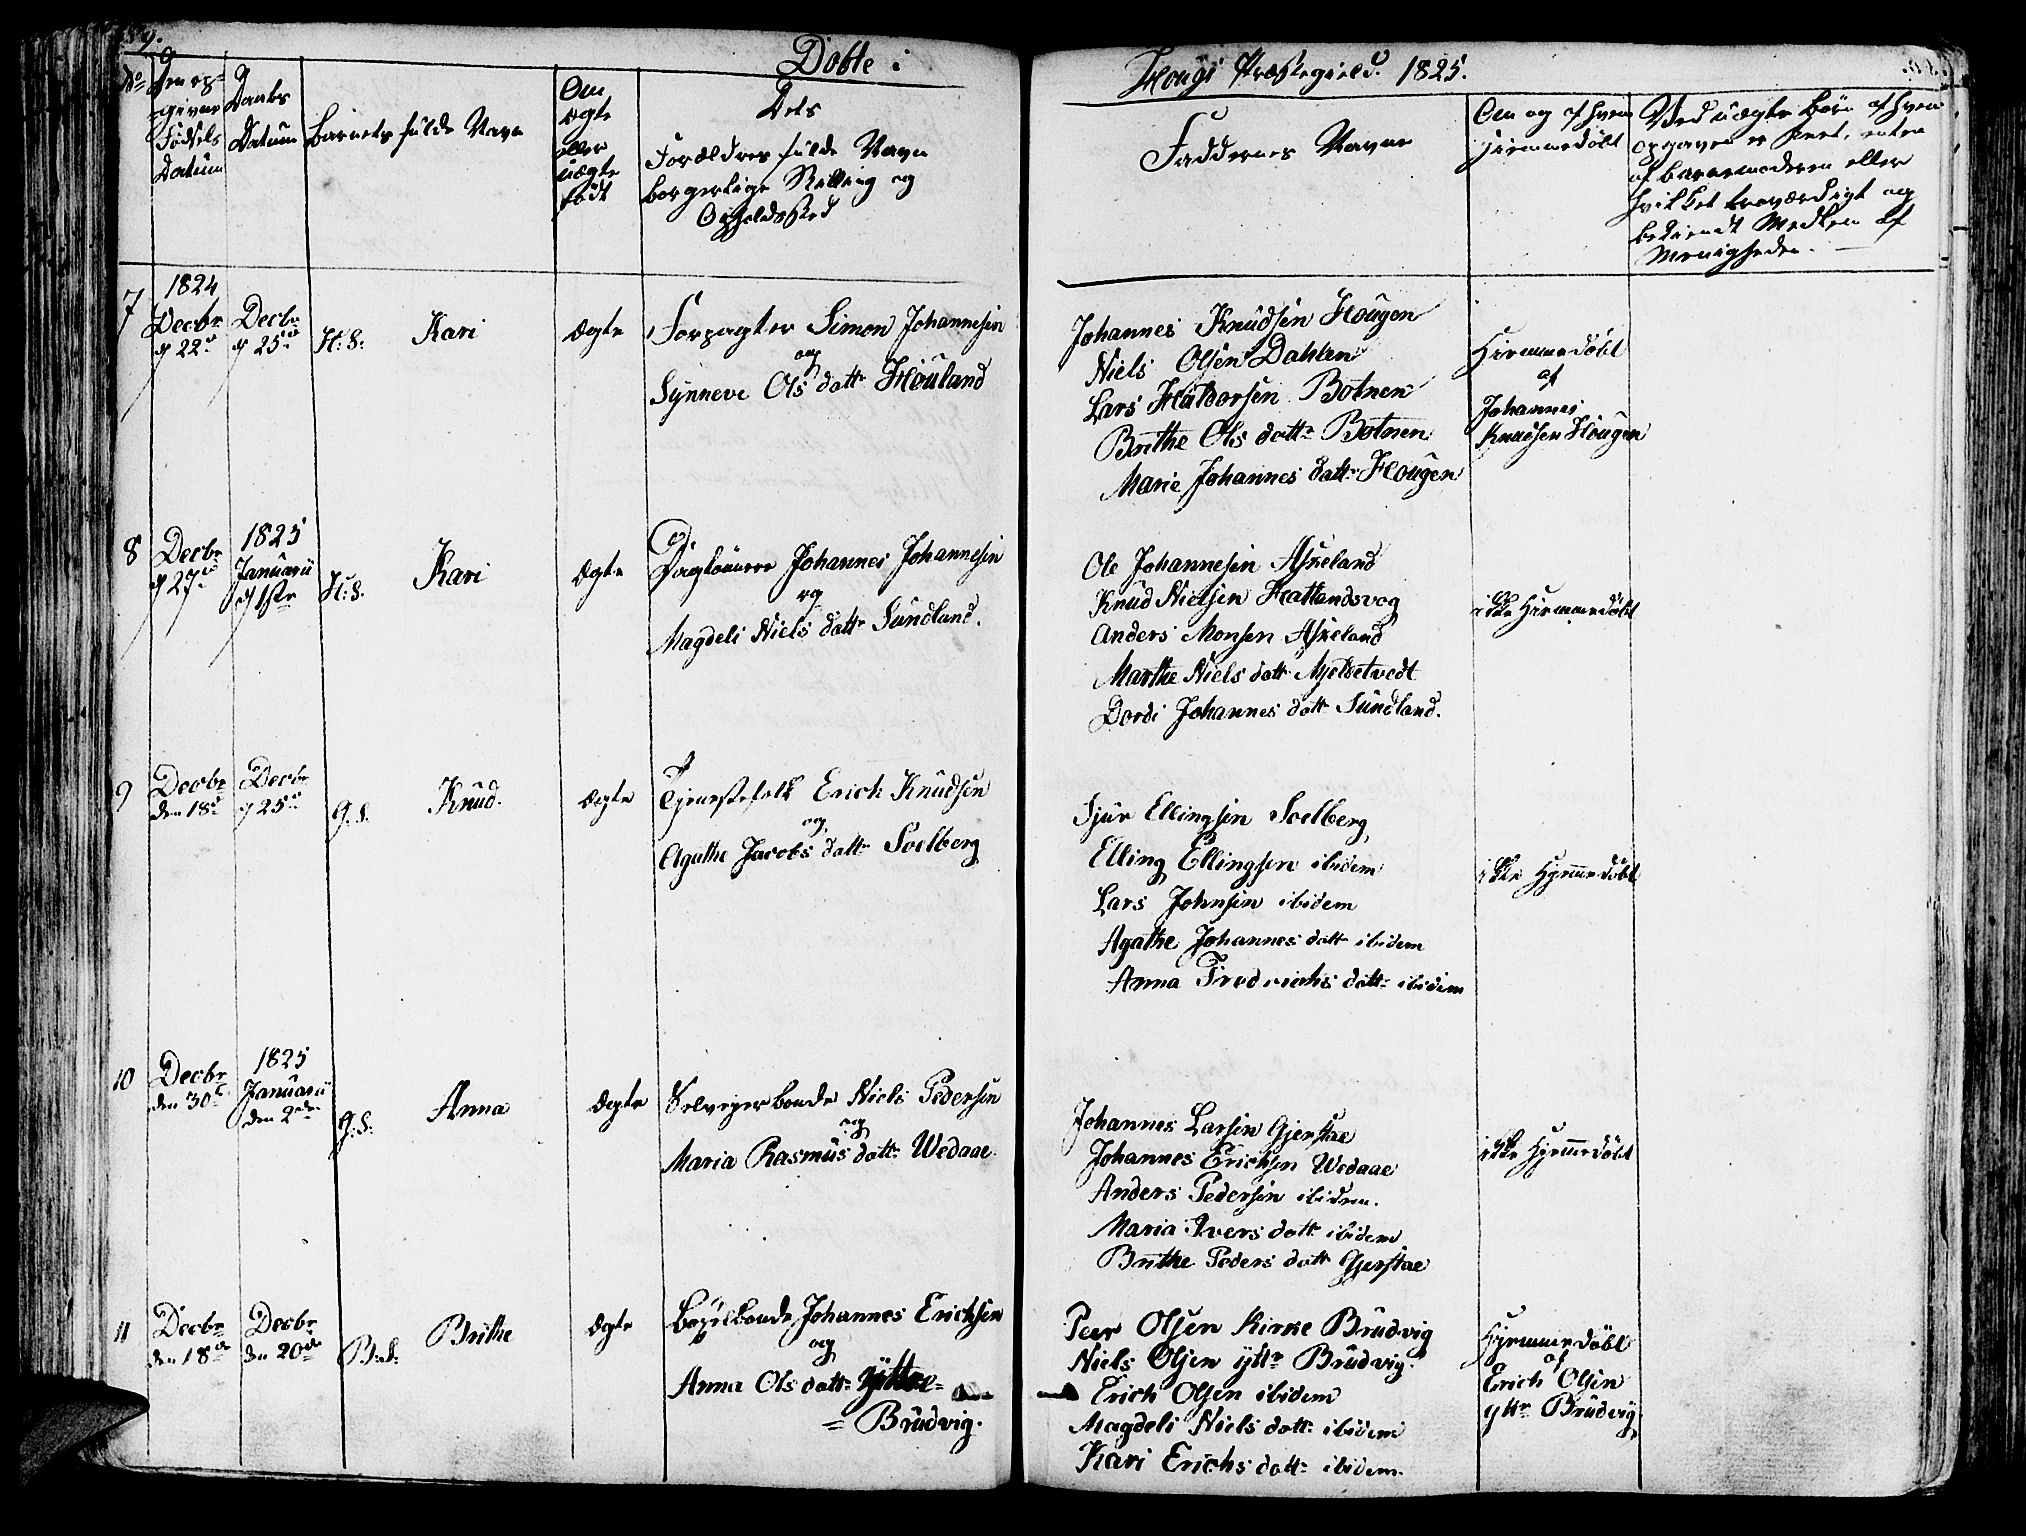 Döbte i
Hougs Præstegield. 1825.
No
Den op=
givne
Födsels
Datum
Daabs
Datum
Barnets fulde Navn
Om
ægte
eller
uægte
födt
Dets
Forældres fulde Navn
borgerlige Stilling og
Opholdssted
Faddernes Navne
Om og af hvem
hjemmedöbt
Ved uægte börn af hvem
opgaven er skeet, enten
af barnemoderen eller
hvilket troværdigt og
bekiendt Medlem af
Menigheden.
7
1824
Decbr
d 22d
Decbr
d 25d
H: S:
Kari
Ægte
Forpagter Simon Johannesen
og
Synneve Ols datt Houland
Johannes Knudsen Hougen
Niels Olsen Dahlen
Lars Haldorsen Botnen
Brithe Ols datt Botnen
Marie Johannes datt Hougen
Hiemmedöbt
af
Johannes
Knudsen Hougen
8
Decbr
d 27d
1825
Januarii
d 1ste
H: S.
Kari
Ægte
Daglönnere Johannes Johannesen
og
Magdeli Niels datt Sundland.
Ole Johannesen Askeland
Knud Nielsen Hatlandsvog
Anders Monsen Askeland
Marthe Niels datt Mjeldetvedt
Dordi Johannes datt Sundland.
ikke Hiemmedöbt
9
Decbr
den 18d
Decbr
d 25d
G. S.
Knud.
Ægte
Tjenestefolk Erich Knudsen
og
Agathe Jacobs datt Soelberg
Sjur Ellingsen Soelberg
Elling Ellingsen ibidem
Lars Johnsen ibidem
Agathe Johannes datt ibidem
Anna Fredrichs datt ibidem
ikke Hjemmedöbt
10
Decbr
den 30t
1825
Januarii
den 2den
G: S:
Anna
Ægte
Selveyerbonde Niels Pedersen
og
Maria Rasmus datt Wedaae
Johannes Larsen Gjerstae
Johannes Erichsen Wedaae
Anders Pedersen ibidem.
Maria Ivers datt ibidem
Brithe Peders datt Gjerstae
ikke Hjemmedöbt
11
Decbr
den 18de
Decbr
den 20de
B: S:
Brithe
Ægte
Bøxelbonde Johannes Erichsen
og
Anna Ols datt Yttre=
= Brudvig.
Peer Olsen Kirke Brudvig
Niels Olsen yttr Brudvig.
Erich Olsen ibidem
Magdeli Niels datt ibidem
Kari Erichs datt ibidem.
Hjemmedöbt
af
Erich Olsen
yttr Brudvig